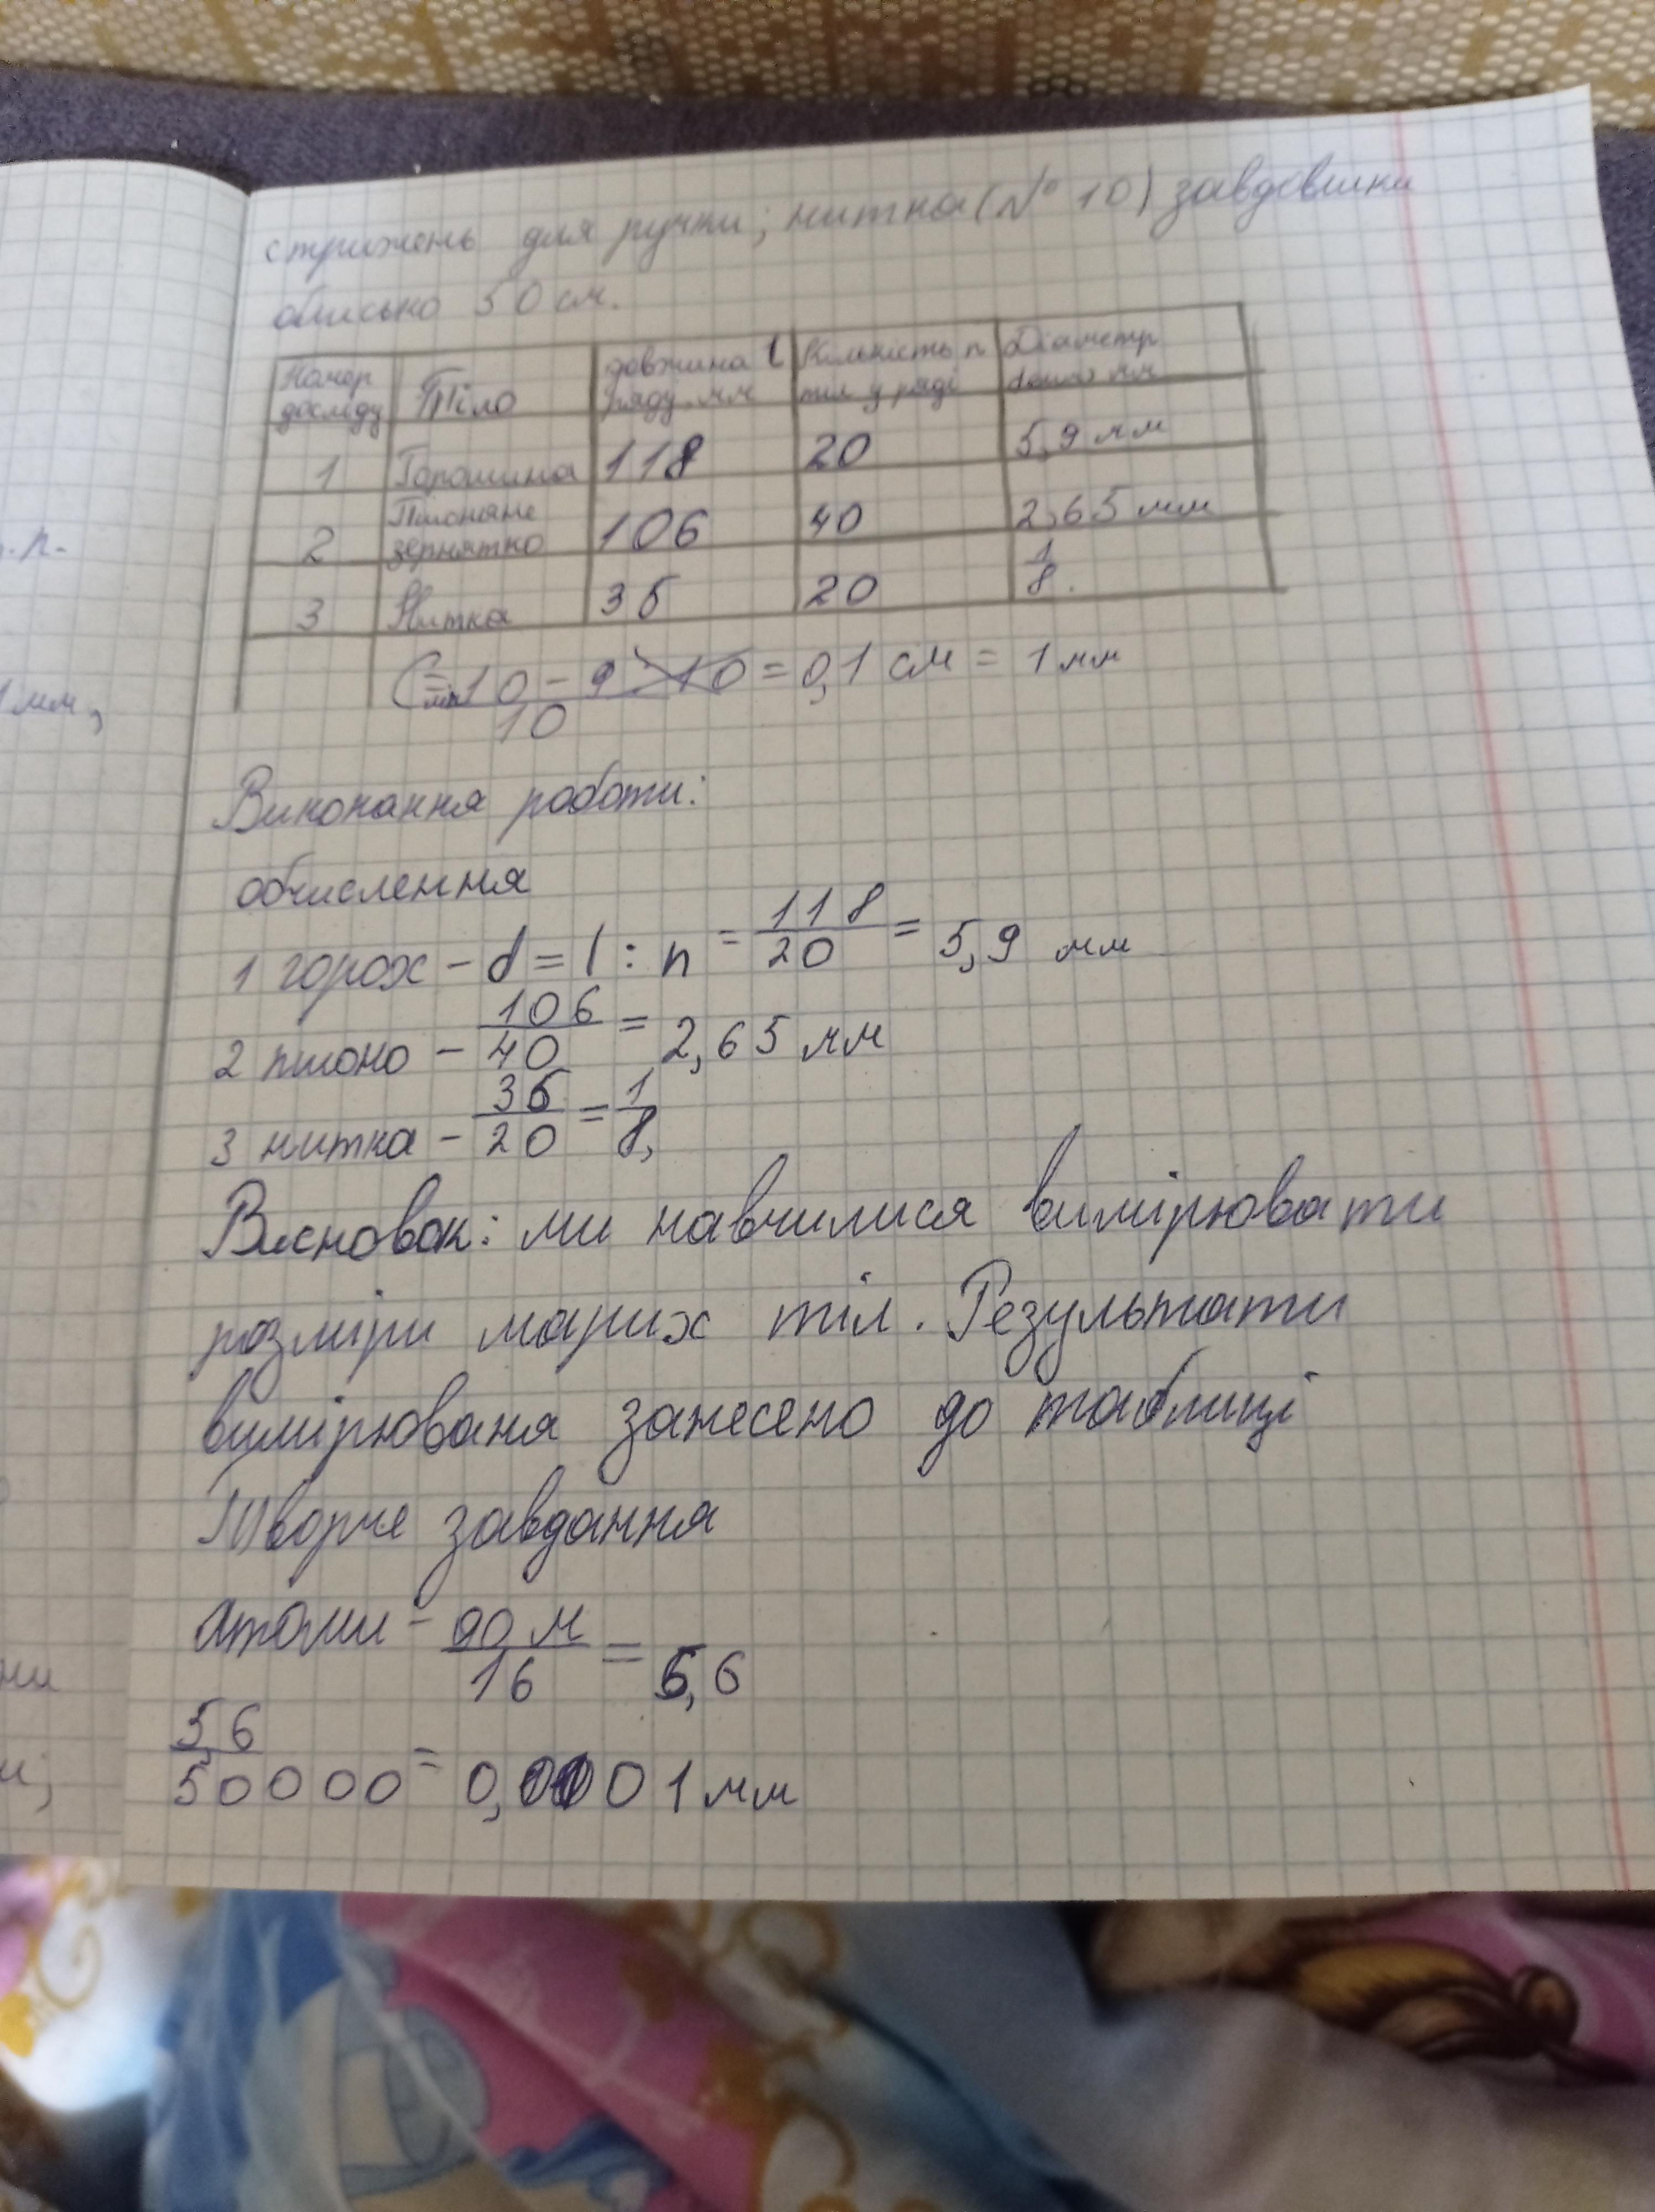 стрижень для ручки; нитка (№ 10) завдовшки
близько 50 см.
Номер досліду | Тіло | довжина l ряду, мм | Кількість n тіл у ряді | Діаметр мм
1 | Горошина | 118 | 20 | 5,9 мм
2 | Пшоняне зернятко | 106 | 40 | 2,65 мм
3 | Нитка | 36 | 20 | 1/8.
10 - 9 : 10 / 10 = 0,1 см = 1 мм
Виконання роботи:
обчислення
1 горох – d = l : n = 118/20 = 5,9 мм
2 пшоно – 106/40 = 2,65 мм
3 нитка – 36/20 = 1/8,
Висновок: ми навчилися вимірювати
розміри марих тіл. Результати
вимірюваня занесено до таблиці
Творче завдання
атоми – 90 м/16 = 5,6
5,6/50000 = 0,0001 мм
.п.
1 мм,
ни